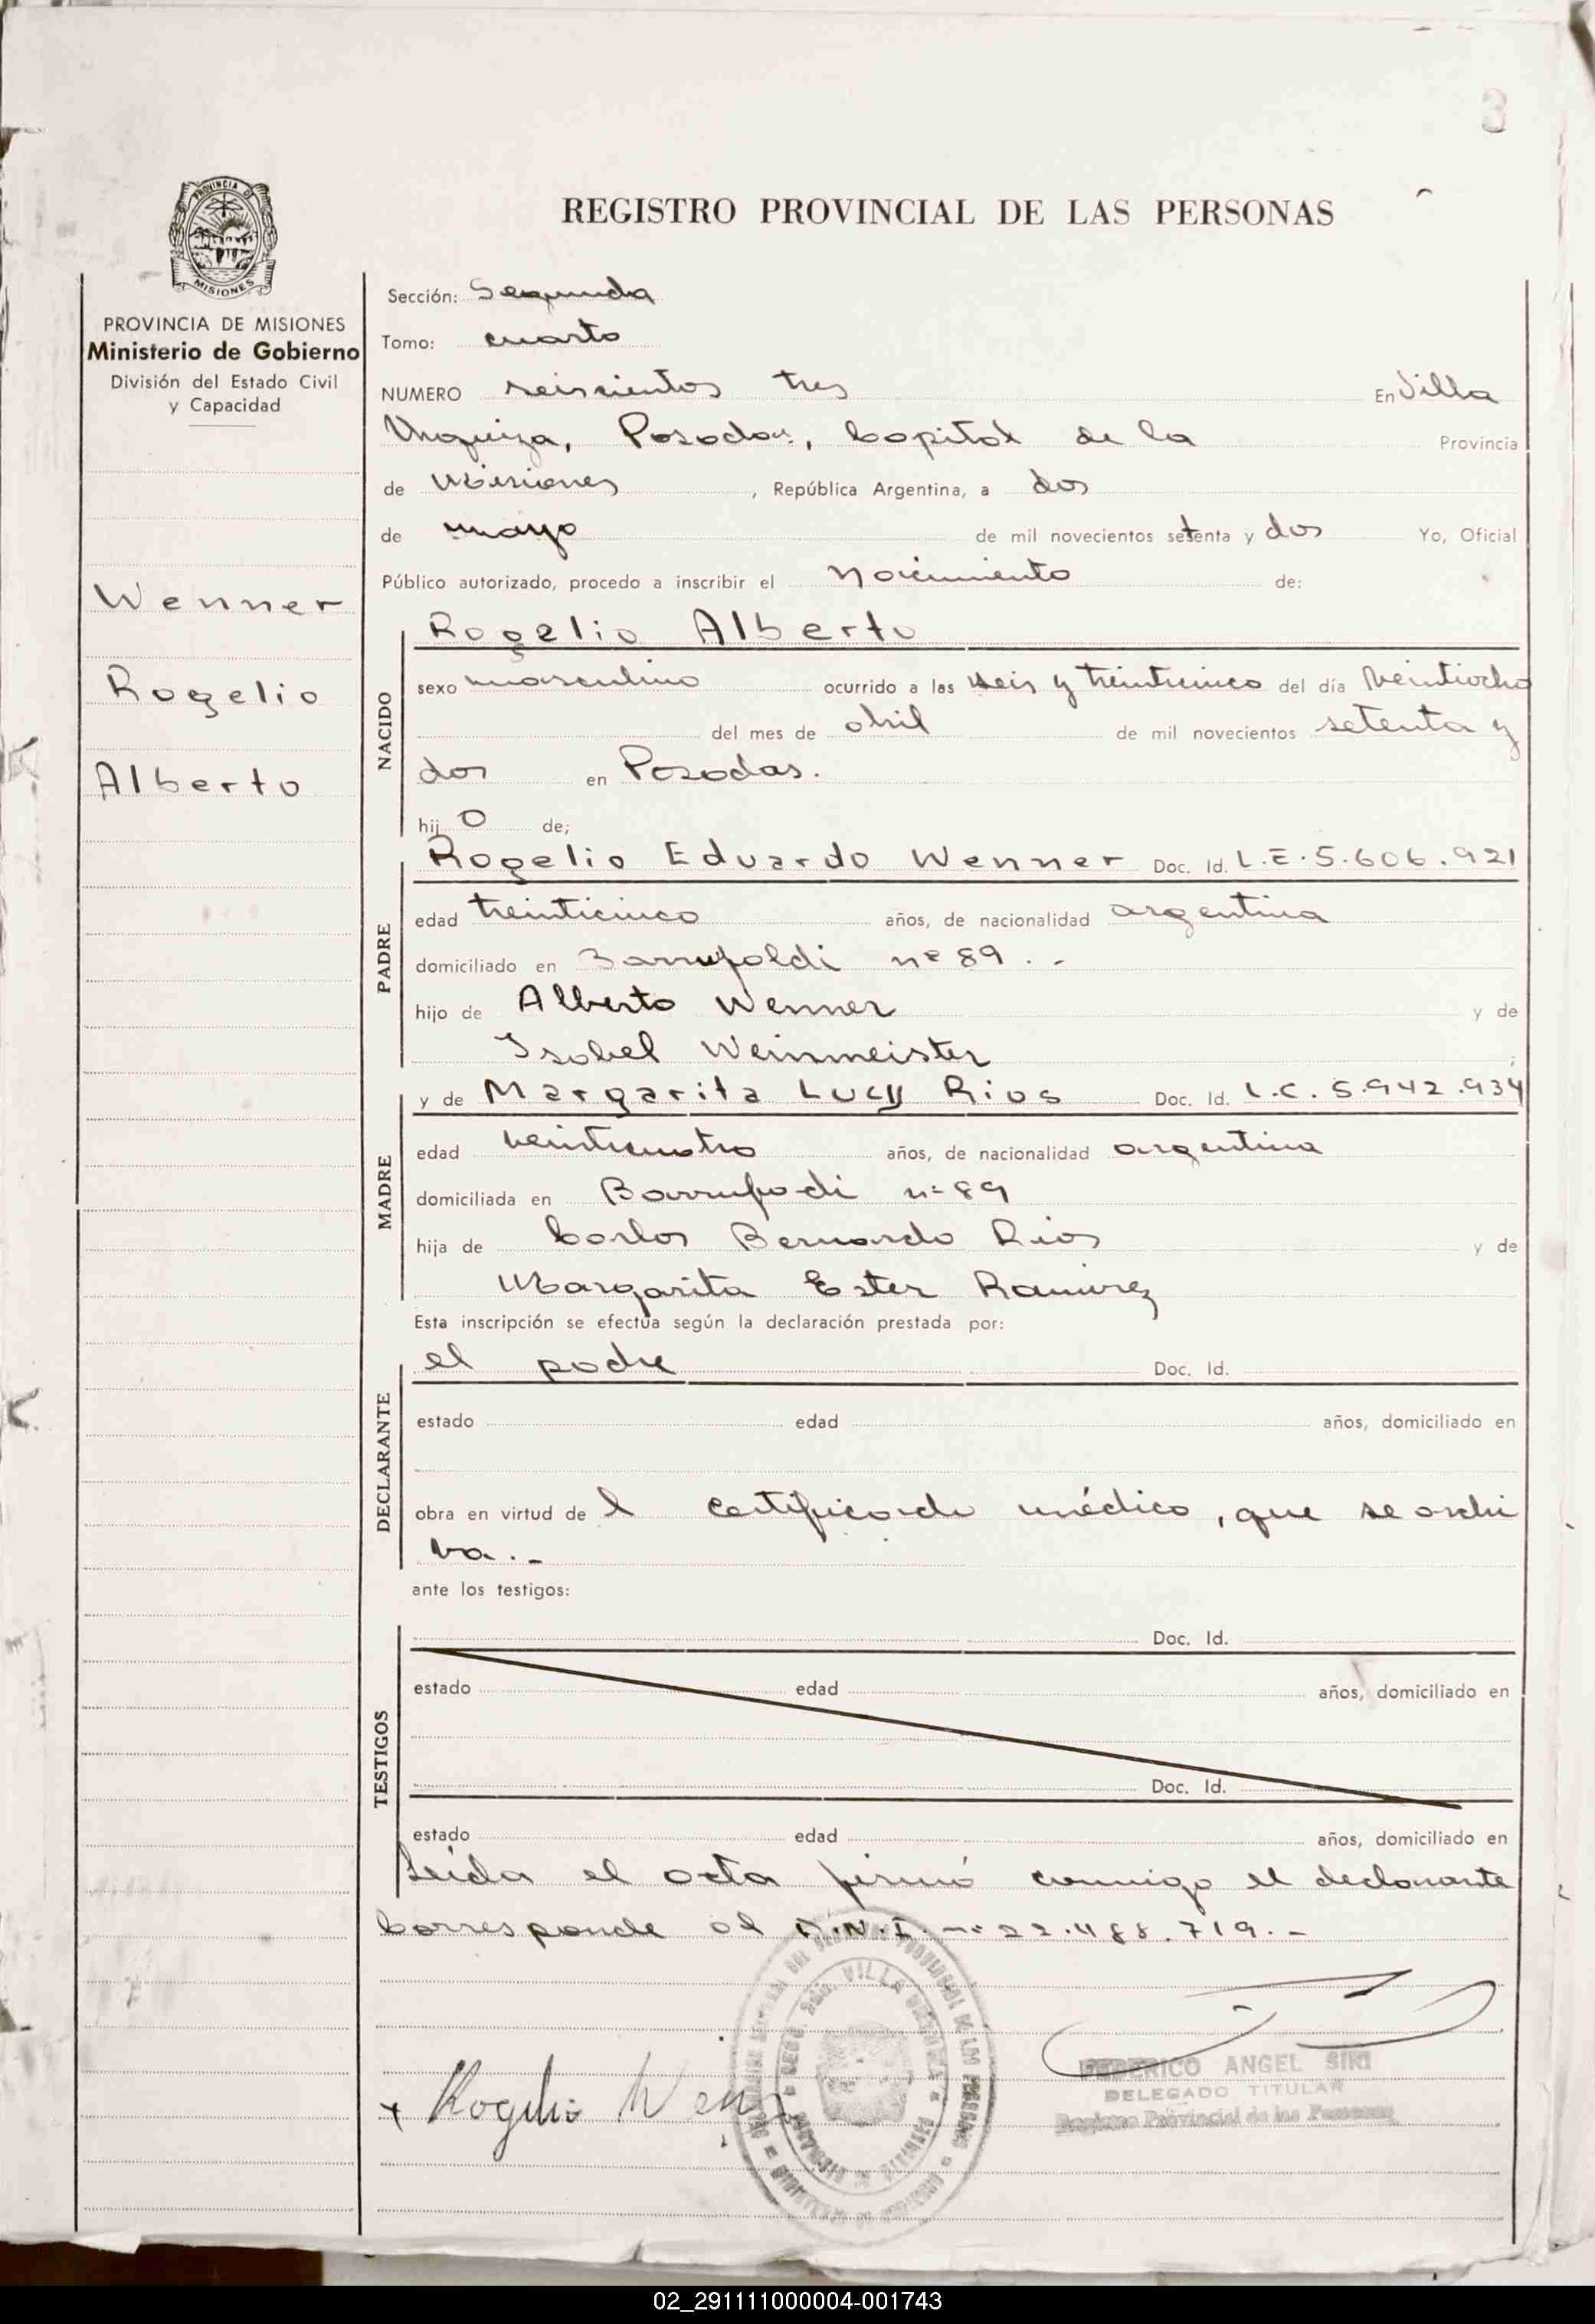 3
REGISTRO PROVINCIAL DE LAS PERSONAS
PROVINCIA DE MISIONES
Ministerio de Gobierno
División del Estado Civil
y Capacidad
Wenner
Rogelio
Alberto
Sección: Segunda
Tomo: cuarto
NUMERO seiscientos tres En Villa
Urquiza, Posadas, Capital de la Provincia
de Misiones, República Argentina, a dos
de mayo de mil novecientos setenta y dos Yo, Oficial
Público autorizado, procedo a inscribir el nacimiento de:
NACIDO
Rogelio Alberto
sexo masculino ocurrido a las seis y treinticinco del día veintiocho
del mes de abril de mil novecientos setenta y
dos en Posadas.
hij o de;
PADRE
Rogelio Eduardo Wenner Doc. Id. L.E. 5.606.921
edad treinticinco años, de nacionalidad argentina
domiciliado en nº 89.-
hijo de Alberto Wenner y de
Isabel Weinmeister ;
MADRE
y de Margarita Lucy Rios Doc. Id. L.C. 5.942.934
edad veinticuatro años, de nacionalidad argentina
domiciliada en nº 89
hija de Carlos Bernardo Rios y de
Margarita Ester Ramirez
Esta inscripción se efectúa según la declaración prestada por:
DECLARANTE
el padre Doc. Id.
estado edad años, domiciliado en
obra en virtud de l certificado médico, que se archi
va.-
ante los testigos:
TESTIGOS
Doc. Id.
estado edad años, domiciliado en
Doc. Id.
estado edad años, domiciliado en
Leída el acta firmó conmigo el declarante
Corresponde al D.N.I. nº 22.488.719.-
Rogelio Wenn
FEDERICO ANGEL SIRI
DELEGADO TITULAR
Registro Provincial de las Personas
02_291111000004-001743